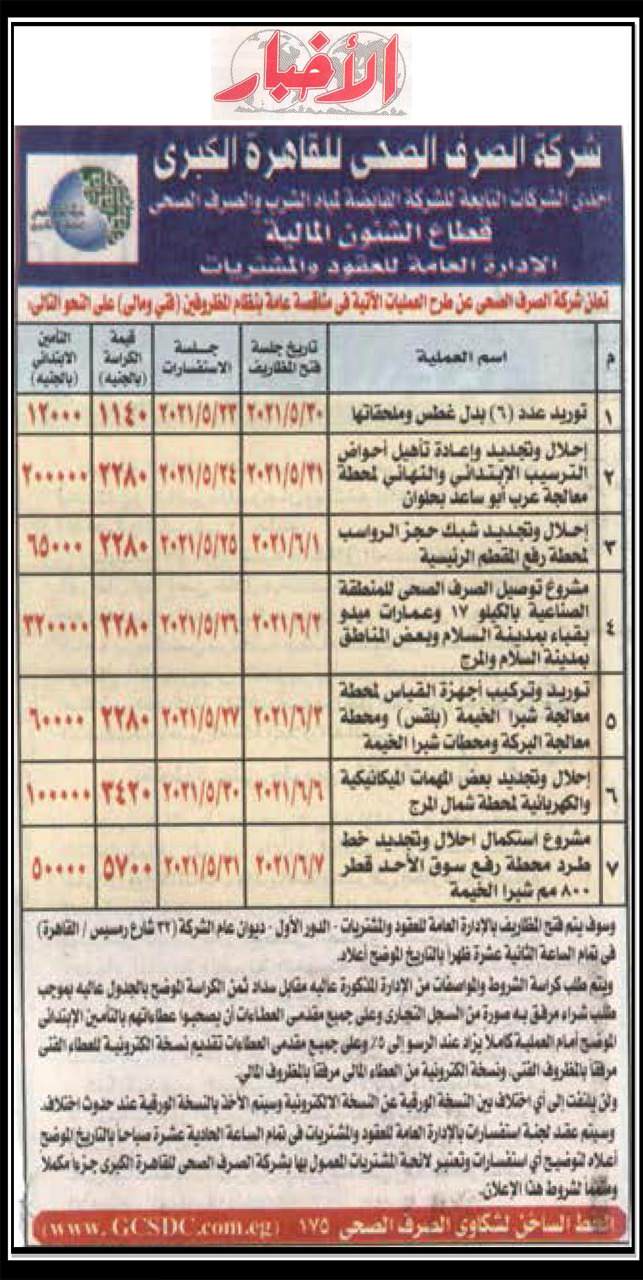 الأخبار
شركة الصرف الصحى للقاهرة الكبرى
إحدى الشركات التابعة للشركة القابضة لمياه الشرب والصرف الصحى
قطاع الشئون المالية
الإدارة العامة للعقود والمشتريات
تعلن شركة الصرف الصحى عن طرح العمليات الآتية فى مناقصة عامة بنظام المظروفين (فني ومالى) على النحو التالى:
م اسم العملية تاريخ جلسة فتح المظاريف جلسة الاستفسارات قيمة الكراسة (بالجنيه) التأمين الابتدائي (بالجنيه)
١ توريد عدد (٦) بدل غطس وملحقاتها ٢٠٢١/٥/٣٠ ٢٠٢١/٥/٢٣ ١١٤٠ ١٢٠٠٠
٢ إحلال وتجديد وإعادة تأهيل أحواض
الترسيب الإبتدائي والنهائي لمحطة
معالجة عرب أبو ساعد بحلوان ٢٠٢١/٥/٣١ ٢٠٢١/٥/٢٤ ٢٢٨٠ ٢٠٠٠٠٠
٣ إحلال وتجديد شبك حجز الرواسب
لمحطة رفع المقطم الرئيسية ٢٠٢١/٦/١ ٢٠٢١/٥/٢٥ ٢٢٨٠ ٦٥٠٠٠
٤ مشروع توصيل الصرف الصحى للمنطقة
الصناعية بالكيلو ١٧ وعمارات ميدو
بقباء بمدينة السلام وبعض المناطق
بمدينة السلام والمرج ٢٠٢١/٦/٢ ٢٠٢١/٥/٢٦ ٢٢٨٠ ٣٢٠٠٠٠
٥ توريد وتركيب أجهزة القياس لمحطة
معالجة شبرا الخيمة (بلقس) ومحطة
معالجة البركة ومحطات شبرا الخيمة ٢٠٢١/٦/٣ ٢٠٢١/٥/٢٧ ٢٢٨٠ ٦٠٠٠٠
٦ إحلال وتجديد بعض المهمات الميكانيكية
والكهربائية لمحطة شمال المرج ٢٠٢١/٦/٦ ٢٠٢١/٥/٣٠ ٣٤٢٠ ١٠٠٠٠٠
٧ مشروع استكمال احلال وتجديد خط
طرد محطة رفع سوق الأحد قطر
٨٠٠ مم شبرا الخيمة ٢٠٢١/٦/٧ ٢٠٢١/٥/٣١ ٥٧٠٠ ٥٠٠٠٠
وسوف يتم فتح المظاريف بالإدارة العامة للعقود والمشتريات - الدور الأول - ديوان عام الشركة (٣٢ شارع رمسيس / القاهرة)
فى تمام الساعة الثانية عشرة ظهراً بالتاريخ الموضح أعلاه.
ويتم طلب كراسة الشروط والمواصفات من الإدارة المذكورة عاليه مقابل سداد ثمن الكراسة الموضح بالجدول عاليه بموجب
طلب شراء مرفق به صورة من السجل التجارى وعلى جميع مقدمى العطاءات أن يصحبوا عطاءاتهم بالتأمين الإبتدائى
الموضح أمام العملية كاملا يزاد عند الرسو الى ٥٪ وعلى جميع مقدمى العطاءات تقديم نسخة الكترونية للعطاء الفنى
مرفقاً بالمظروف الفنى، ونسخة الكترونية من العطاء المالى مرفقاً بالمظروف المالي.
ولن يلتفت إلى أي اختلاف بين النسخة الورقية عن النسخة الالكترونية وسيتم الأخذ بالنسخة الورقية عند حدوث اختلاف.
وسيتم عقد لجنة استفسارات بالإدارة العامة للعقود والمشتريات فى تمام الساعة الحادية عشرة صباحاً بالتاريخ الموضح
أعلاه لتوضيح أي استفسارات وتعتبر لائحة المشتريات المعمول بها بشركة الصرف الصحى للقاهرة الكبرى جزءاً مكملا
ومتمما لشروط هذا الإعلان.
الخط الساخن لشكاوى الصرف الصحى ١٧٥ (www.GCSDC.com.eg)